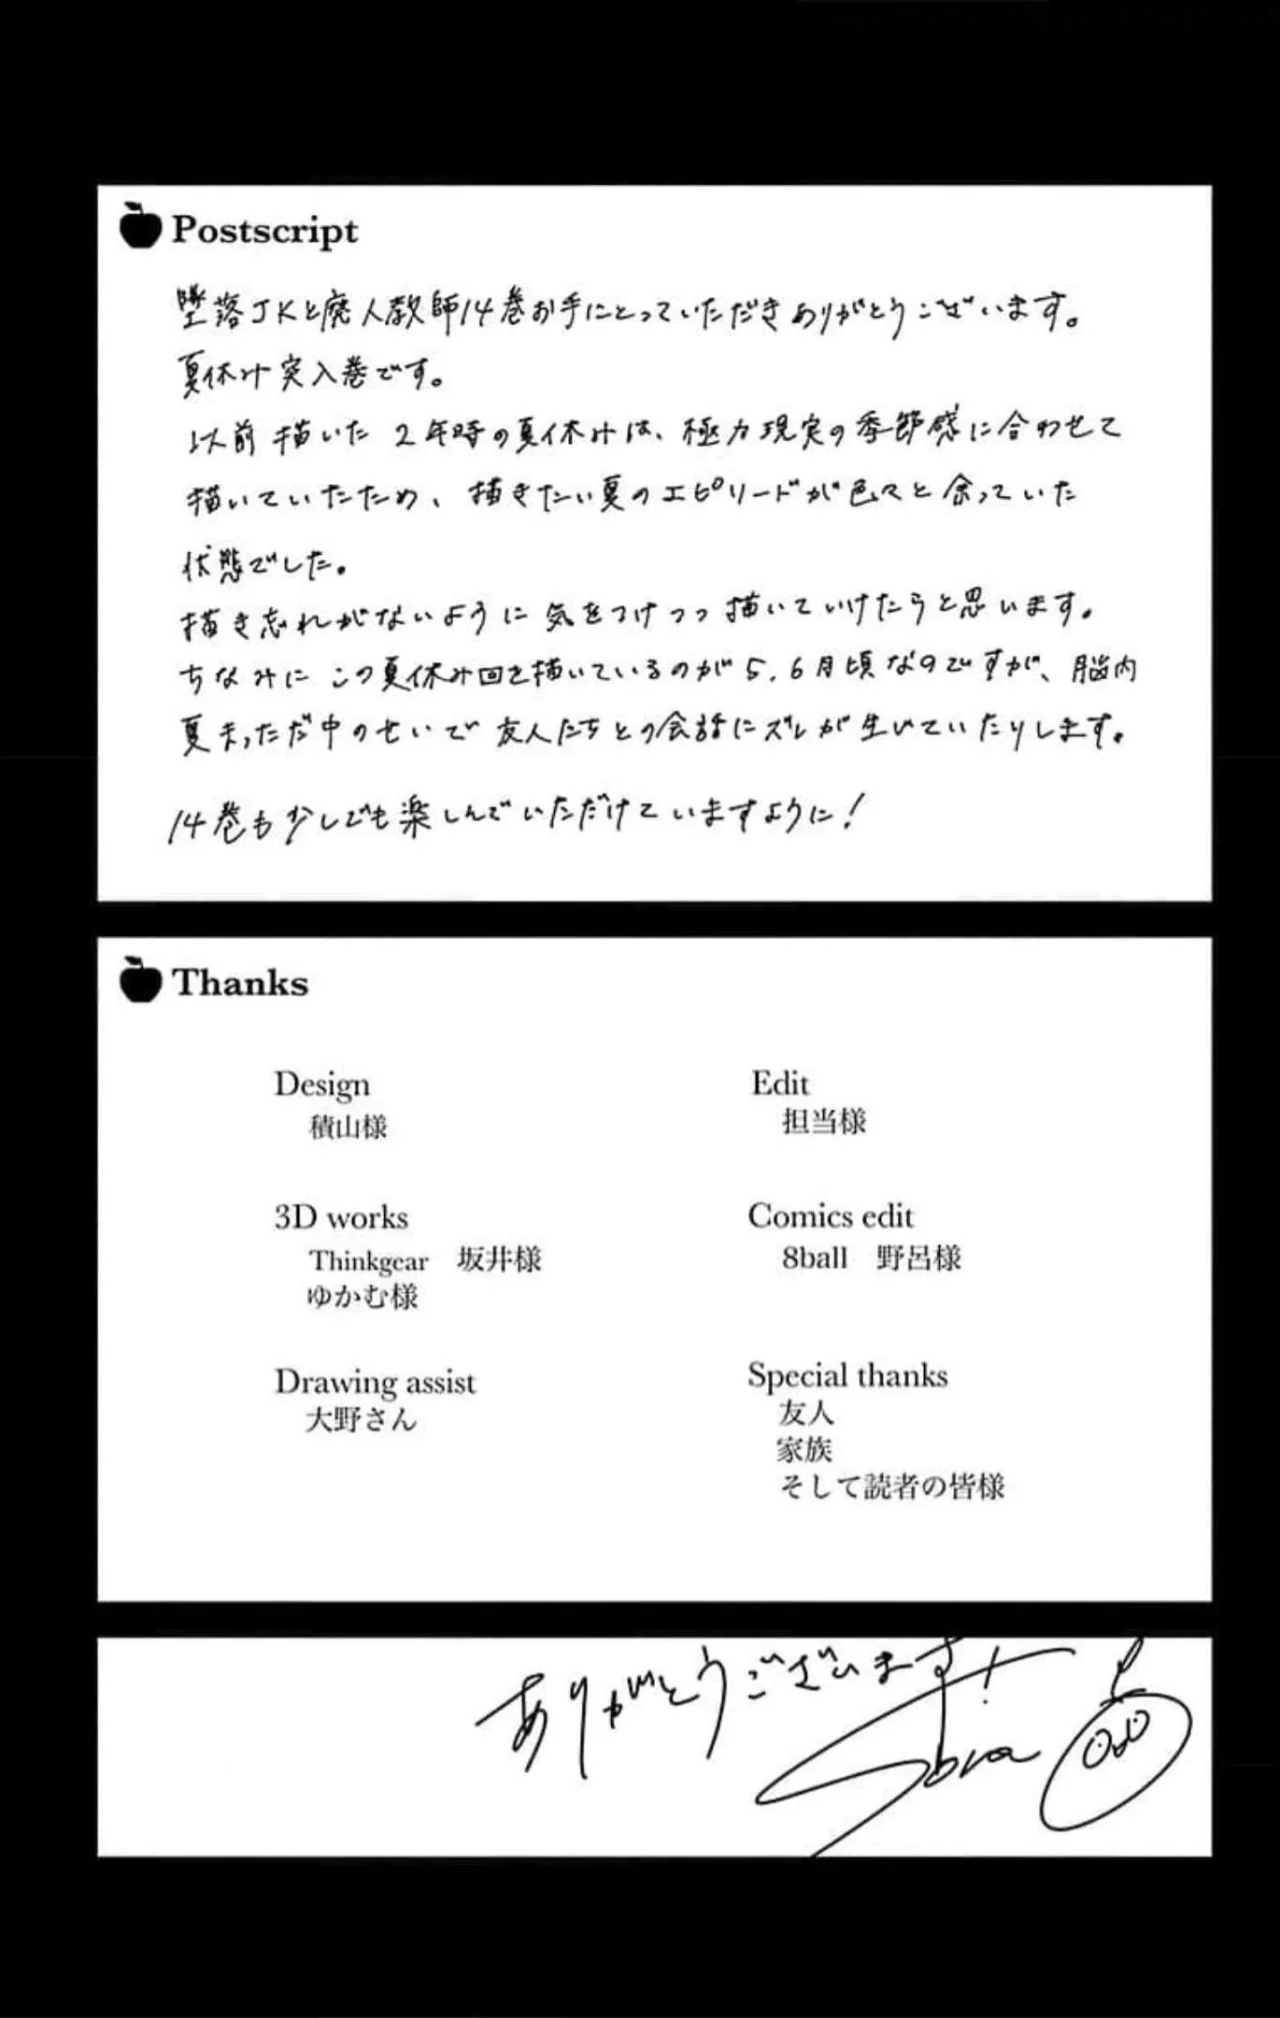 Postscript
墜落JKと廃人教師14巻お手にとっていただきありがとうございます。
夏休み突入巻です。
以前描いた2年時の夏休みは、極力現実の季節感に合わせて
描いていたため、描きたい夏のエピソードが色々と余っていた
状態でした。
描き忘れがないように気をつけつつ描いていけたらと思います。
ちなみにこの夏休み回を描いているのが5.6月頃なのですが、脳内
夏まっただ中のせいで友人たちとの会話にズレが生じていたりします。
14巻も少しでも楽しんでいただけていますように!
Thanks
Design
積山様
Edit
担当様
3D works
Thinkgear 坂井様
ゆかむ様
Comics edit
8ball 野呂様
Drawing assist
大野さん
Special thanks
友人
家族
そして読者の皆様
ありがとうございます!
Sora